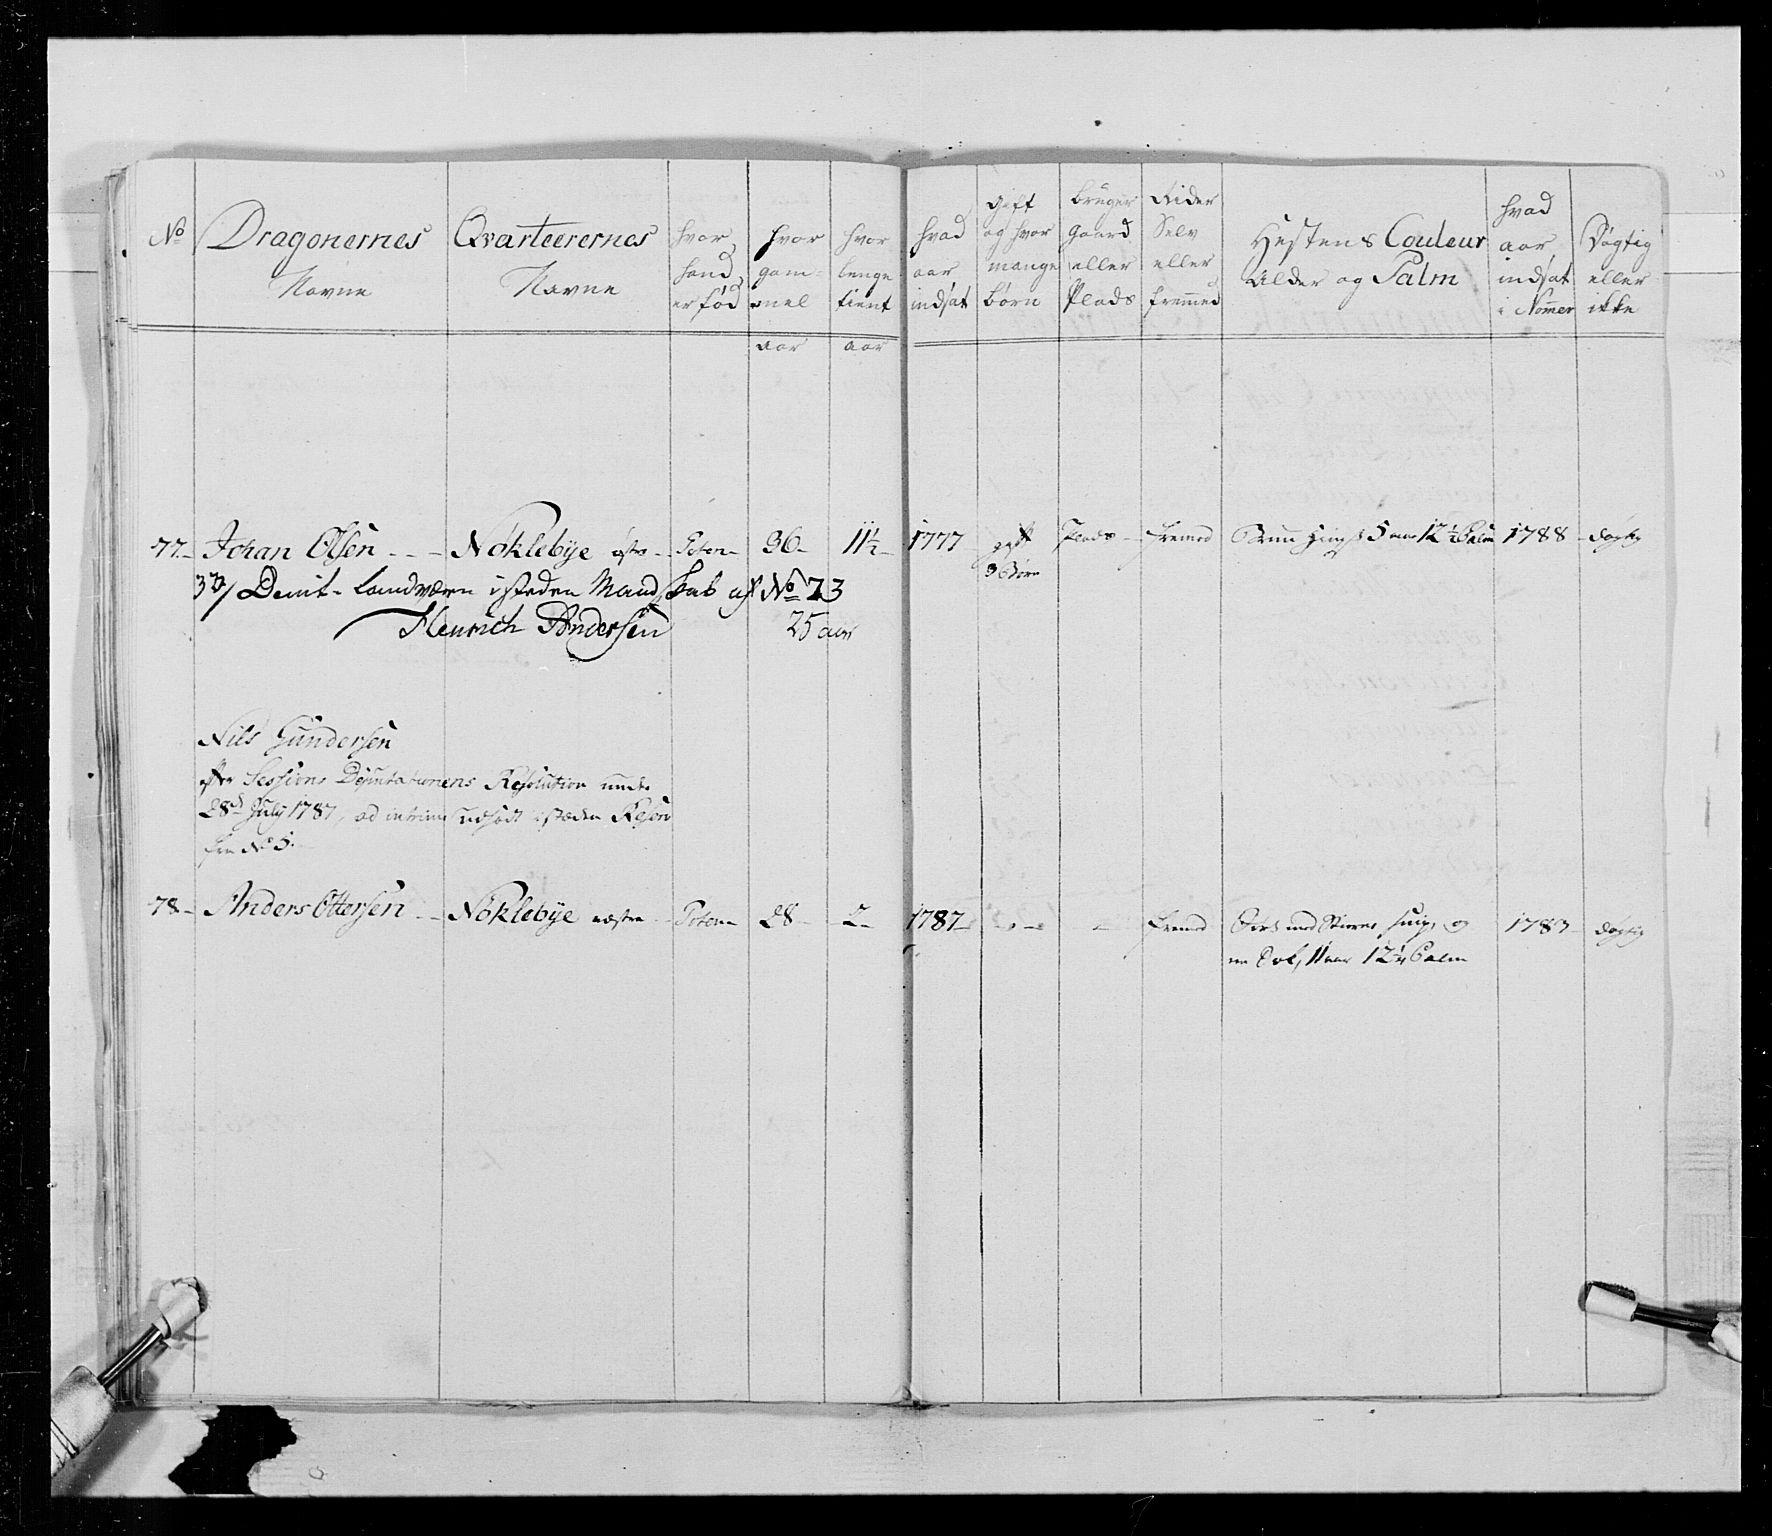 No
Dragonernes Navne
Qvarteerernes Navne
hvor hand er fød
hvor gammel
hvor lenge tient
hvad aar indsat
Gift og hvor mange børn
bruger Gaard eller Plads
Rider Selv eller fremmed
Hestens Couleur Alder og Palm
hvad aar indsat i Nomer
Dögtig eller ikke
aar aar
77 Johan Olsen Nöklebÿe östre Toten 36 11½ 1777 gift Plads fremed Brun Hingst 5 aar 12½ Palm 1788 dögtig
3 Börn
Demit. Landværn isteden Mandskab af No 73
Henrich Andersen 25 aar
Nils Gundersen
efter Sessions Deputationens Resolution under
28d July 1787, ad interim udsødt istæden Reserv
fra No 5.
78 Anders Ottersen Nöklebÿe væstre Toten 28 2 1787 fremed med Stierne og
11 aar 12¼ Palm 1783 dögtig